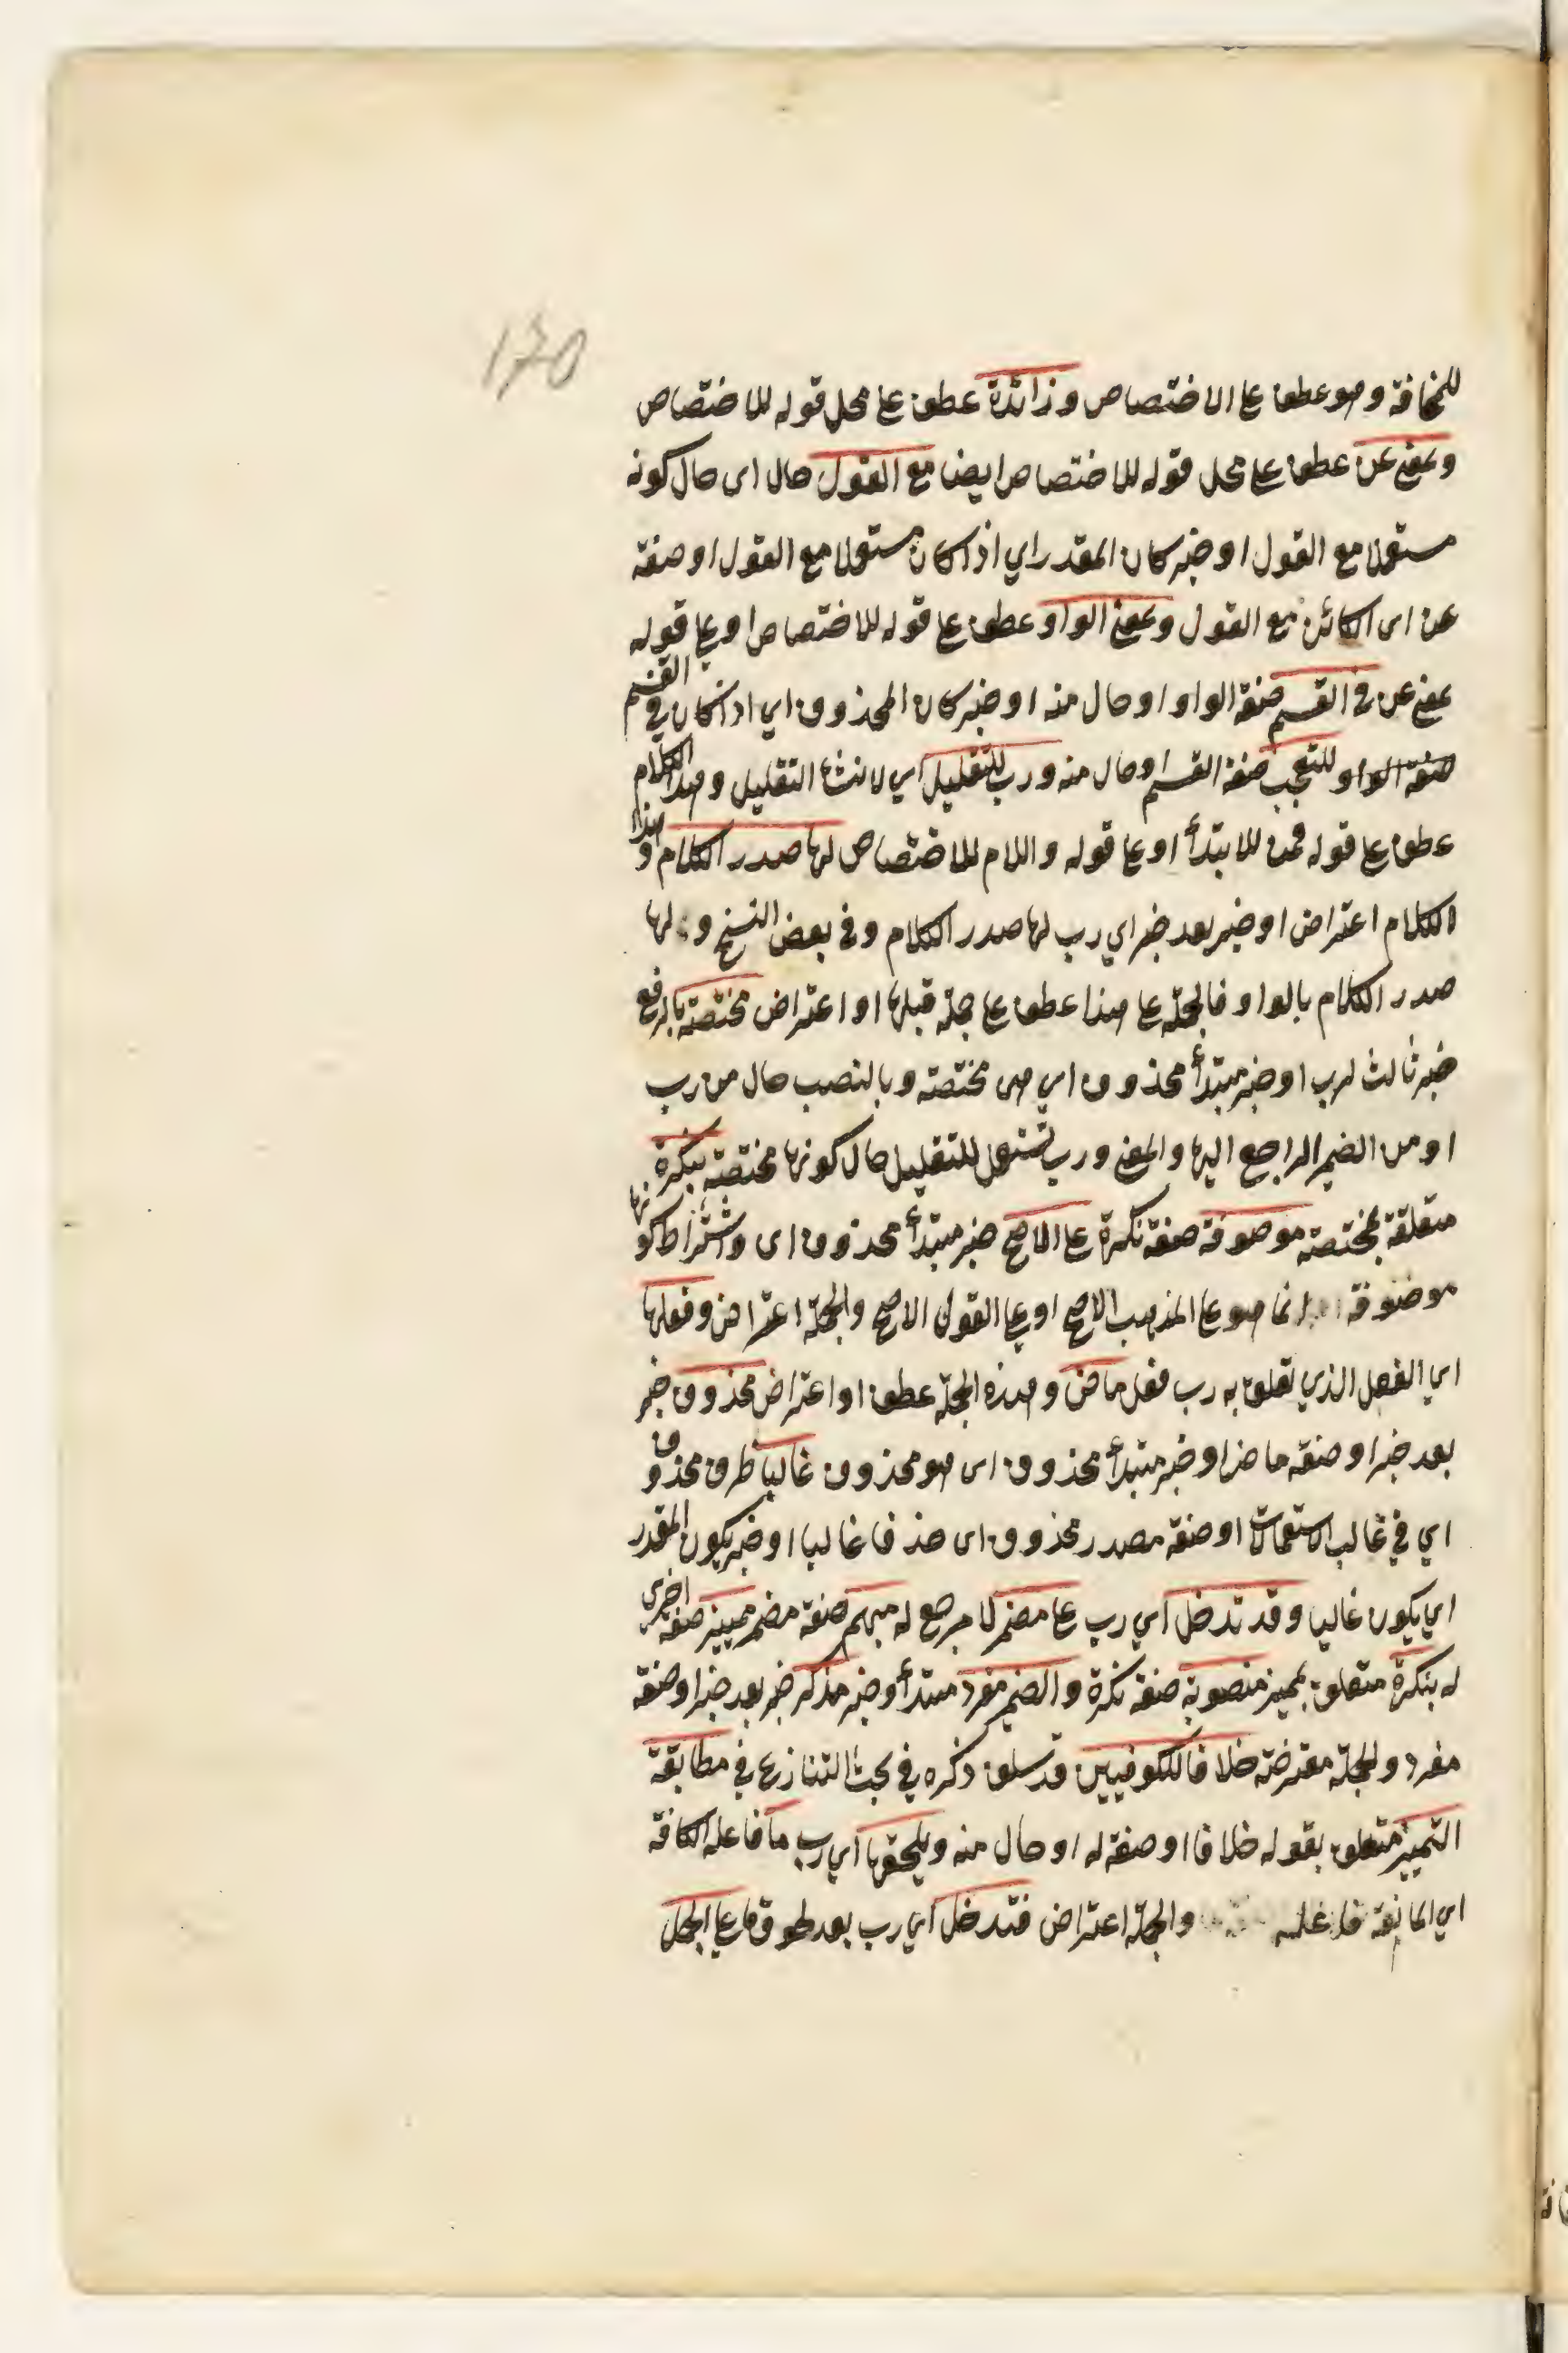 170
للمخافة وهو عطف على الاختصاص وزائدة عطف على محل قوله للاختصاص
وبمعنى عن عطف على محل قوله للاختصاص ايضا مع القول حال اى حال كونه
مستعملا مع القول او خبر كان المقدر اي اذا كان مستعملا مع القول او صفة
عن اى الكائن مع القول وبمعنى الواو عطف على قوله للاختصاص او على قوله
بمعنى عن فى القسم صفة الواو او حال منه او خبر كان المحذوف اي اذا كان في القسم
صفة الواو للتعجب صفة القسم او حال منه ورب للتقليل اي لانشاء التقليل وهذا الكلام
عطف على قوله فمن للابتدأ او على قوله واللام للاختصاص لها صدر الكلام وهذا
الكلام اعتراض او خبر بعد خبر اي رب لها صدر الكلام وفى بعض النسخ ولها
صدر الكلام بالواو فالجملة على هذا عطف على جملة قبلها او اعتراض مختصة بالرفع
خبر ثالث لرب او خبر مبتدأ محذوف اي هى مختصة وبالنصب حال من رب
او من الضمير الراجع اليها والمعنى ورب تستعمل للتقليل حال كونها مختصة بنكرة
متعلقة بمختصة موصوفة صفة نكرة على الاصح خبر مبتدأ محذوف اى واشتراط كونها
موصوفة انما هو على المذهب الاصح او على القول الاصح والجملة اعتراض وفعلها
اي الفعل الذي تعلق به رب فعل ماض وهذه الجملة عطف او اعتراض محذوف خبر
بعد خبر او صفة ماض او خبر مبتدأ محذوف اى هو محذوف غالبا ظرف محذوف
اي في غالب الاستعمالات او صفة مصدر محذوف اى حذفا غالبا او خبر يكون المقدر
اي يكون غالبا وقد تدخل اي رب على مضمر لا مرجع له مبهم صفة مضمر مميز صفة اخرى
له بنكرة متعلق بمميز منصوبة صفة نكرة والضمير مفرد مبتدأ وخبر مذكر خبر بعد خبر او صفة
مفرد والجملة معترضة خلافا للكوفيين قد سلف ذكره في بحث التنازع في مطابقة
التمييز متعلق بقوله خلافا او صفة له او حال منه ويلحقها اي رب ما فاعله الكافة
اي المانعة فاعله والجملة اعتراض فتدخل اي رب بعد لحوق ما على الجمل